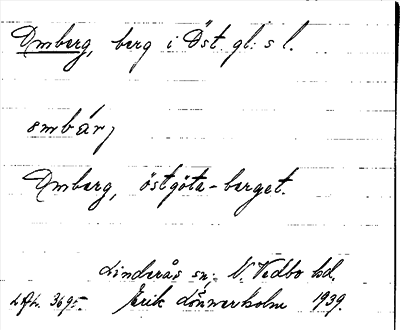 Omberg, berg i Öst. gl. s l.
ombárj
Omberg, östgöta-berget.
Linderås sn; N. Vedbo hd
Erik Lönnerholm 1939.